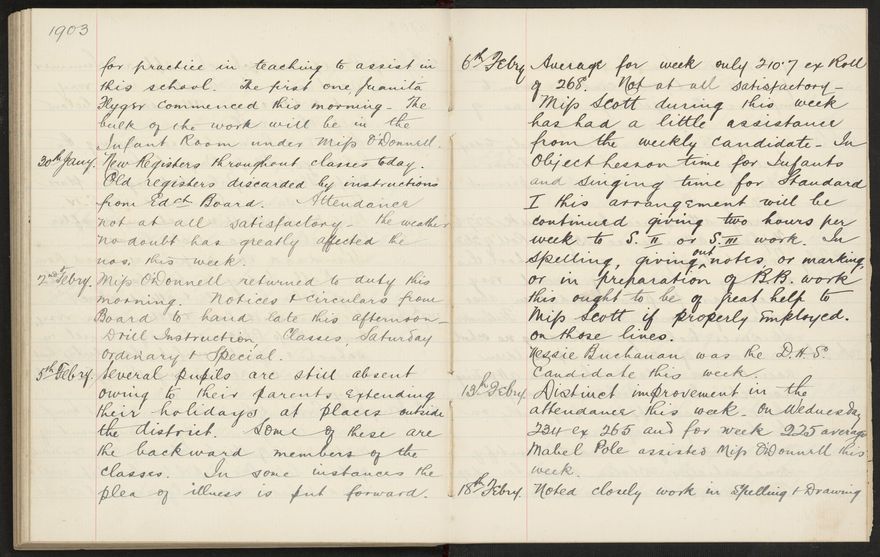 1903
for practice in teaching to assist in
this school. The first one, Juanita
Hyger commenced this morning - The
bulk of the work will be in the
Infant Room under Miss O'Donnell.
30th Jany. New Registers throughout classes today.
Old registers discarded by instructions
from Edct Board. Attendance
not at all satisfactory - the weather
no doubt has greatly affected the
nos. this week.
2nd Febry. Miss O'Donnell returned to duty this
morning. Notices & Circulars from
Board to hand late this afternoon -
Drill Instruction, Classes, Saturday
ordinary & Special.
5th Febry. Several pupils are still absent
owing to their parents extending
their holidays at places outside
the district. Some of these are
the backward members of the
classes. In some instances the
plea of illness is put forward.
6th Febry Average for week only 210.7 ex Roll
of 268. Not at all satisfactory -
Miss Scott during this week
has had a little assistance
from the weekly candidate - In
Object Lesson time for Infants
and singing time for Standard
I this arrangement will be
continued giving two hours per
week to S. II or S. III work. In
Spelling, giving out notes, or marking,
or in preparation of B.B. work
this ought to be of great help to
Miss Scott if properly employed.
on those lines.
Nessie Buchanan was the D.H.S.
Candidate this week.
13th Febry. Distinct improvement in the
attendance this week. On Wednesday
234 ex 265 and for week 225 average
Mabel Pole assisted Miss O'Donnell this
week.
18th Febry. Noted closely work in Spelling & Drawing